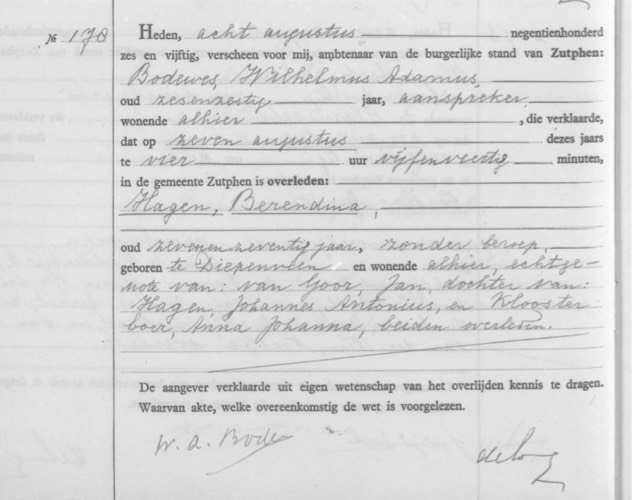 № 178
Heden, acht augustus negentienhonderd
zes en vijftig, verscheen voor mij, ambtenaar van de burgerlijke stand van Zutphen:
Bodewes, Wilhelmus Adamus,
oud zesenzestig jaar, aanspreker,
wonende alhier, die verklaarde,
dat op zeven augustus dezes jaars
te vier uur vijfenveertig minuten,
in de gemeente Zutphen is overleden:
Hagen, Berendina,
oud zevenenzeventig jaar, zonder beroep,
geboren te Diepenveen en wonende alhier, echtge-
note van: van Goor, Jan, dochter van:
Hagen, Johannes Antonius, en Klooster-
boer, Anna Johanna, beiden overleden.
De aangever verklaarde uit eigen wetenschap van het overlijden kennis te dragen.
Waarvan akte, welke overeenkomstig de wet is voorgelezen.
W. A. Bode